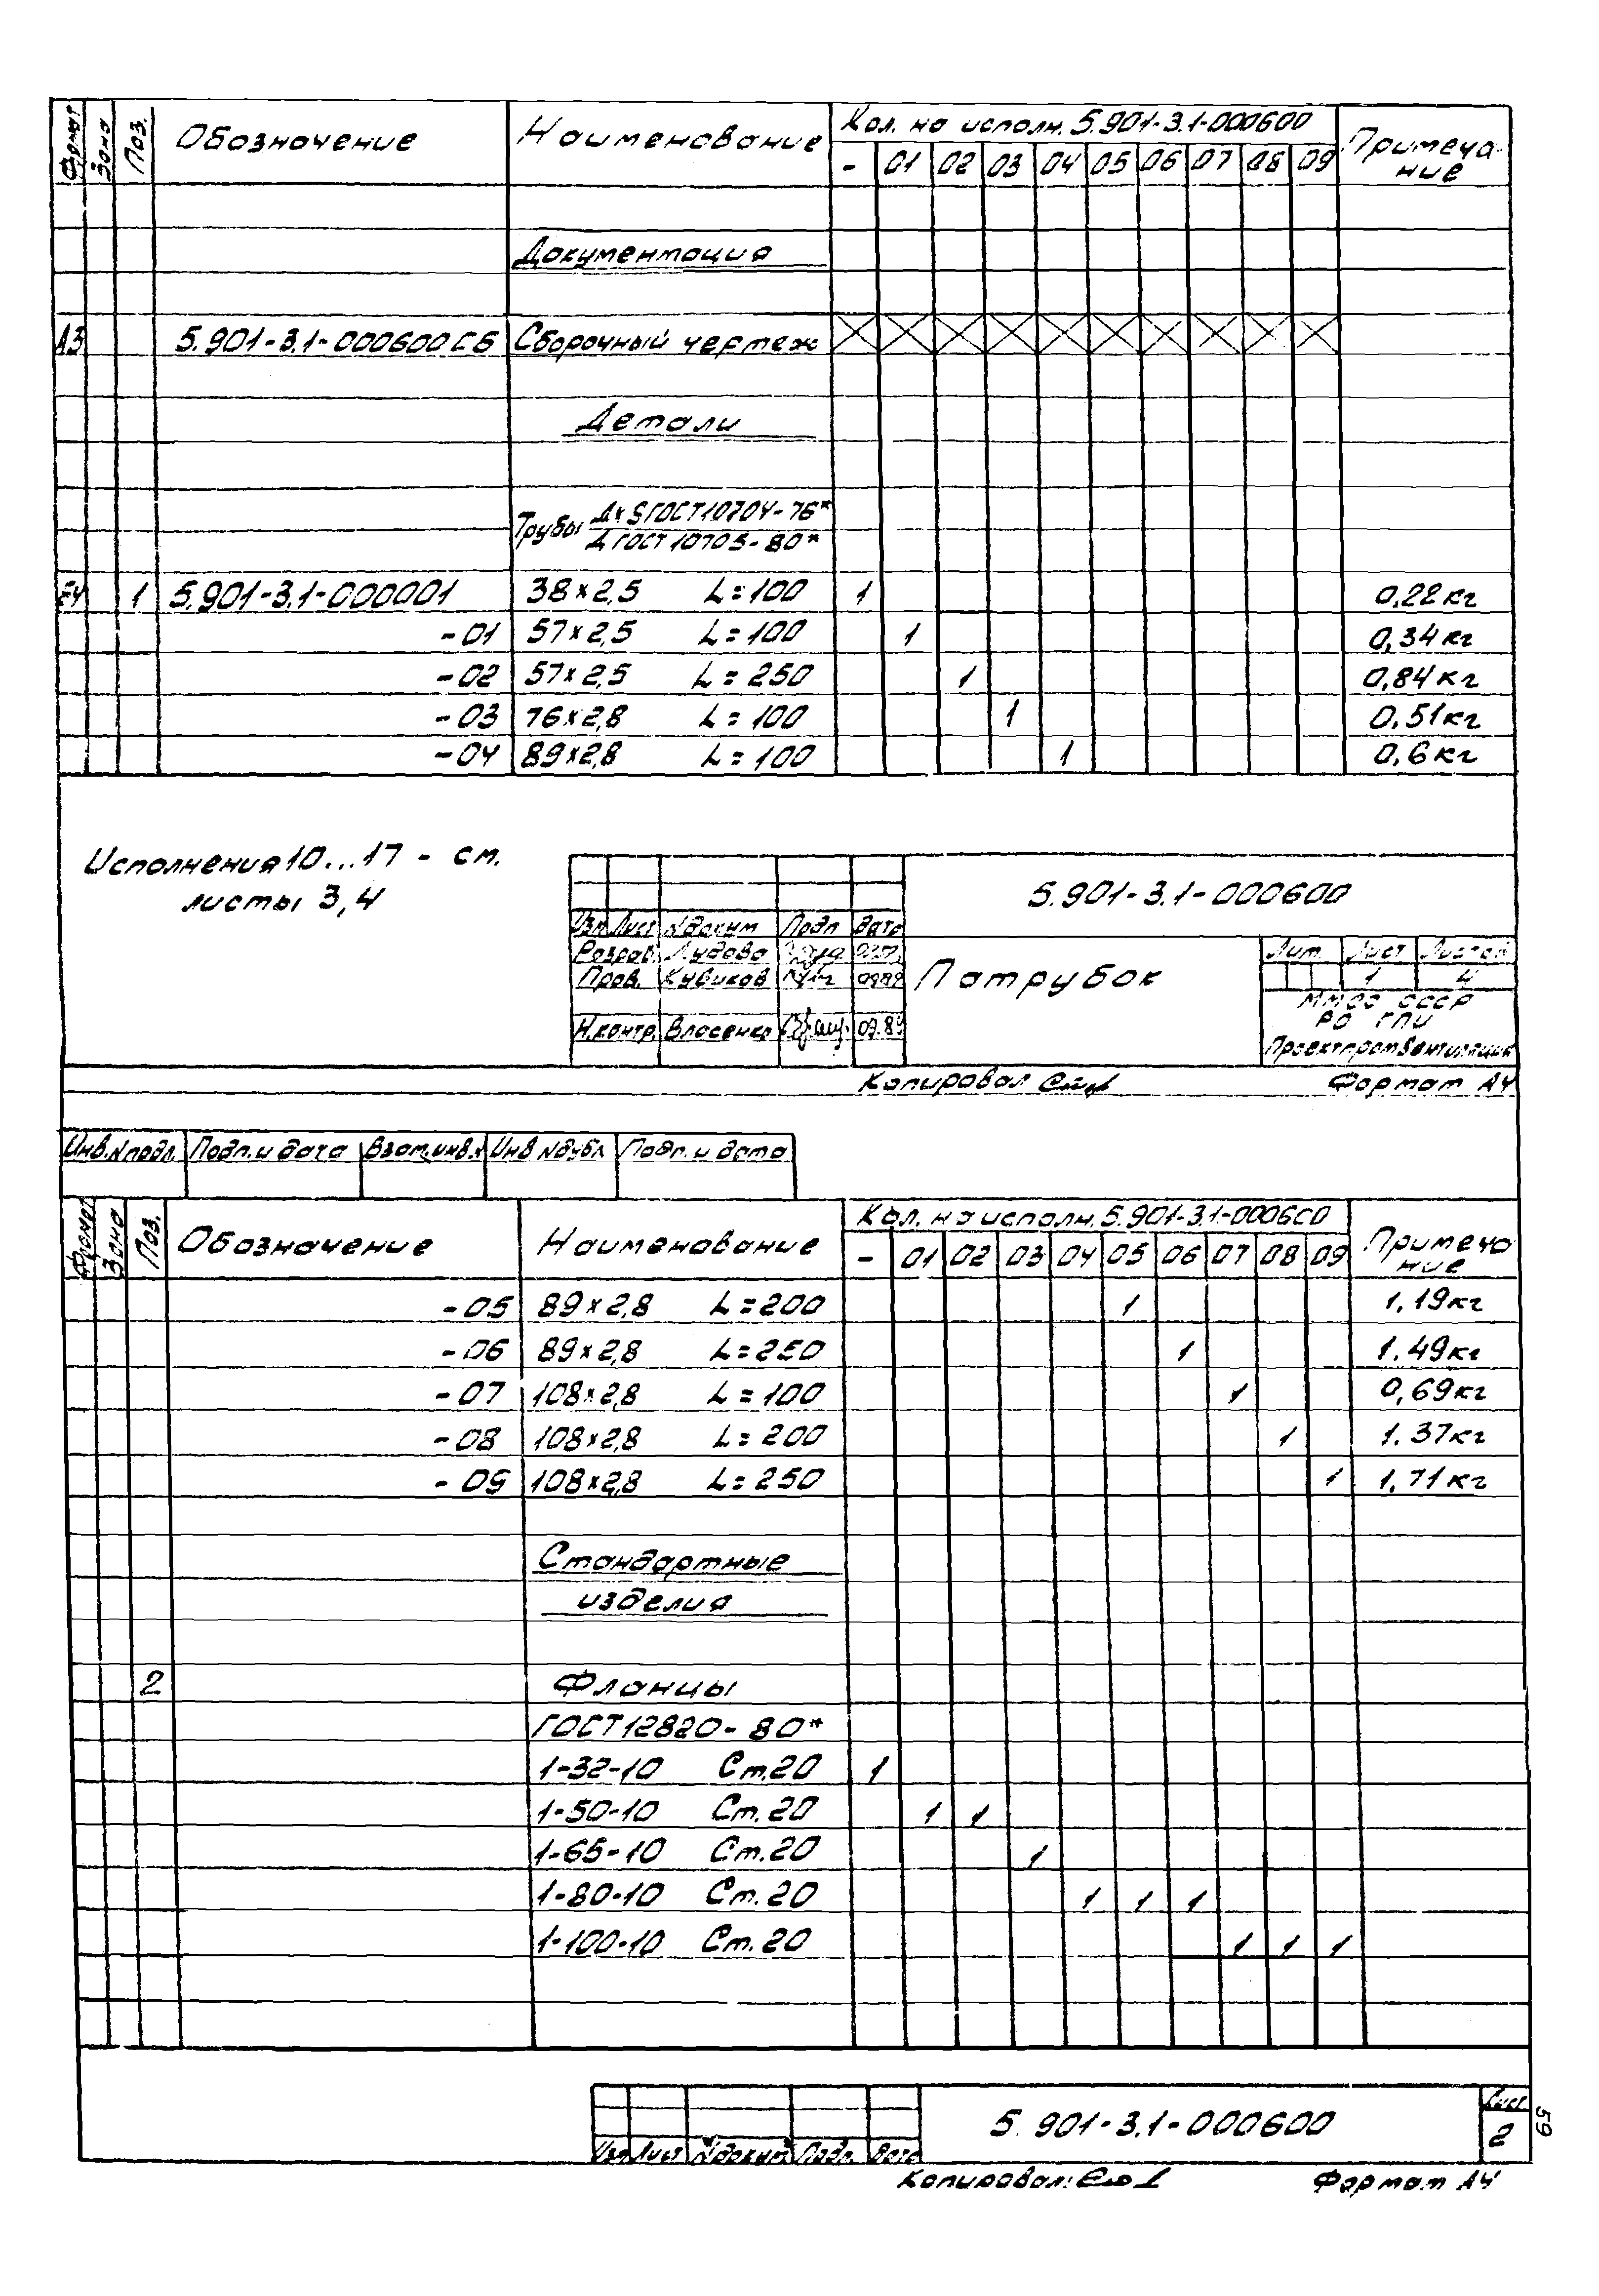 Формат Зона Поз. Обозначение Наименование Кол. на исполн. 5.901-3.1-000600 Примеча-
- 01 02 03 04 05 06 07 08 09 ние
Документация
А3 5.901-3.1-000600СБ Сборочный чертеж
Детали
Трубы Д×S ГОСТ 10704-76*
Д ГОСТ 10705-80*
Б4 1 5.901-3.1-000001 38×2,5 L=100 1 0,22кг
-01 57×2,5 L=100 1 0,34кг
-02 57×2,5 L=250 1 0,84кг
-03 76×2,8 L=100 1 0,51кг
-04 89×2,8 L=100 1 0,6кг
Исполнения 10...17 - см.
листы 3,4
5.901-3.1-000600
Изм Лист N докум Подп Дата
Разраб. Лит Лист Листов
Пров. Патрубок 1 4
ММСС СССР
РО ГПИ
Н.контр. Власенко 07.89 Проектпромвентиляция
Копировал Формат А4
Инв.N подл. Подп. и дата Взам.инв.N Инв.N дубл. Подп. и дата
Формат Зона Поз. Обозначение Наименование Кол. на исполн. 5.901-3.1-000600 Примеча
- 01 02 03 04 05 06 07 08 09 ние
-05 89×2,8 L=200 1 1,19кг
-06 89×2,8 L=250 1 1.49кг
-07 108×2,8 L=100 1 0,69кг
-08 108×2,8 L=200 1 1.37кг
-09 108×2,8 L=250 1 1,71кг
Стандартные
изделия
2 Фланцы
ГОСТ 12820-80*
1-32-10 Ст.20 1
1-50-10 Ст.20 1 1
1-65-10 Ст.20 1
1-80-10 Ст.20 1 1 1
1-100-10 Ст.20 1 1 1
5.901-3.1-000600 Лист
2
Изм Лист N докум Подп. Дата
Копировал: Формат А4
59